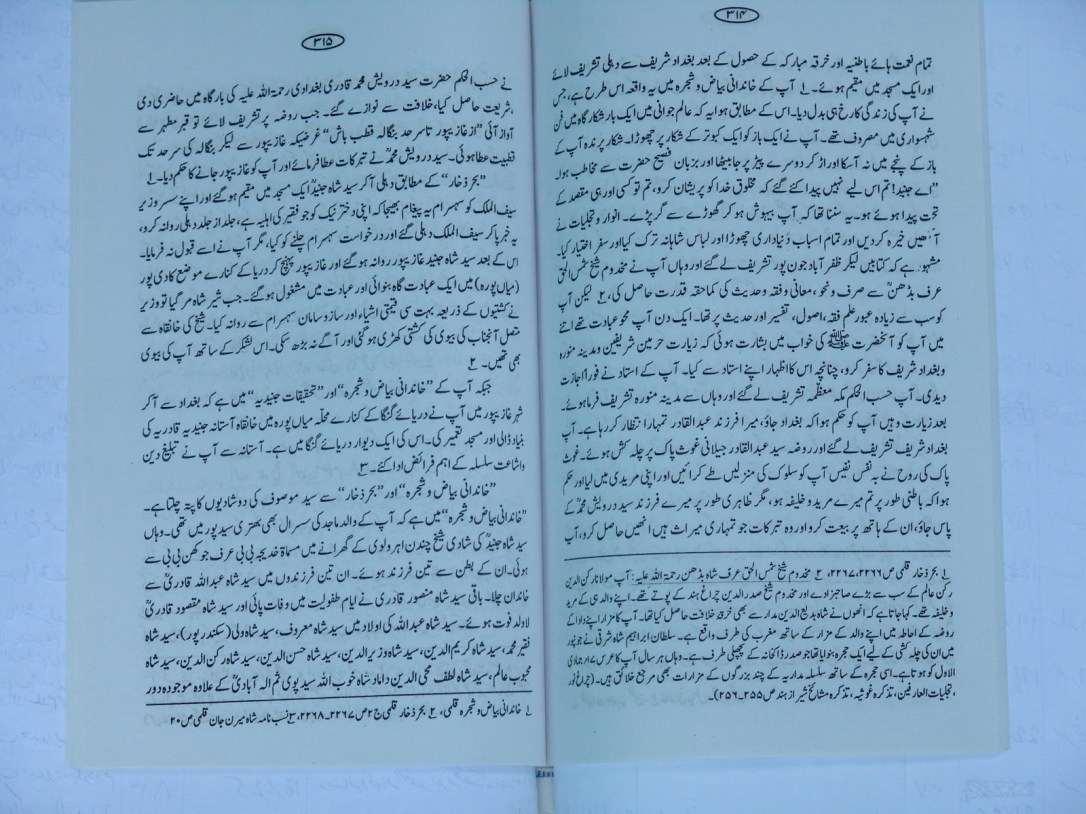 ۳۱۴
تمام نعمت ہائے باطنیہ اور خرقہ مبارکہ کے حصول کے بعد بغداد شریف سے دہلی تشریف لائے
اور ایک مسجد میں مقیم ہوئے۔ ۱ آپ کے خاندانی بیاض و شجرہ میں یہ واقعہ اس طرح ہے، جس
نے آپ کی زندگی کا رخ ہی بدل دیا۔ اس کے مطابق ہوا یہ کہ عالم جوانی میں ایک بار شکار گاہ میں فن
شہسواری میں مصروف تھے۔ آپ نے ایک باز کو ایک کبوتر کے شکار پر چھوڑا۔ شکار پرندہ آپ کے
باز کے پنجے میں نہ آسکا اور اڑ کر دوسرے پیڑ پر جا بیٹھا اور بزبان فصیح حضرت سے مخاطب ہوا۔
”اے جنید! تم اس لیے نہیں پیدا کئے گئے کہ مخلوق خدا کو پریشان کرو، تم تو کسی اور ہی مقصد کے
تحت پیدا ہوئے ہو۔ یہ سننا تھا کہ آپ بیہوش ہو کر گھوڑے سے گر پڑے۔ انوار و تجلیات نے
آنکھیں خیرہ کردیں اور تمام اسباب دنیاداری چھوڑا اور لباس شاہانہ ترک کیا اور سفر اختیار کیا۔
مشہور ہے کہ کتابیں لیکر ظفر آباد جون پور تشریف لے گئے اور وہاں آپ نے مخدوم شیخ شمس الحق
عرف بڈھن سے صرف و نحو، معانی و فقہ و حدیث کی کماحقہ قدرت حاصل کی، ۲ لیکن آپ
کو سب سے زیادہ عبور علم فقہ، اصول، تفسیر اور حدیث پر تھا۔ ایک دن آپ محو عبادت تھے اتنے
میں آپ کو آنحضرت ﷺ کی خواب میں بشارت ہوئی کہ زیارت حرمین شریفین و مدینہ منورہ
و بغداد شریف کا سفر کرو، چنانچہ اس کا اظہار اپنے استاد سے کیا۔ آپ کے استاد نے فوراً اجازت
دیدی۔ آپ حسب الحکم مکہ معظمہ تشریف لے گئے اور وہاں سے مدینہ منورہ تشریف فرما ہوئے۔
بعد زیارت وہیں آپ کو حکم ہوا کہ بغداد جاؤ، میرا فرزند عبدالقادر تمہارا انتظار کر رہا ہے۔ آپ
بغداد شریف تشریف لے گئے اور روضہ سید عبدالقادر جیلانی غوث پاک پر چلہ کش ہوئے۔ غوث
پاک کی روح نے بہ نفس نفیس آپ کو سلوک کی منزلیں طے کرائیں اور اپنی مریدی میں لیا اور حکم
ہوا کہ باطنی طور پر تم میرے مرید و خلیفہ ہو، مگر ظاہری طور پر میرے فرزند سید درویش محمد کے
پاس جاؤ، ان کے ہاتھ پر بیعت کرو اور وہ تبرکات جو تمہاری میراث ہیں انھیں حاصل کرو، آپ
۱ بحر ذخار قلمی ص ۲۲۶۶، ۲۲۶۷۔ ۲ مخدوم شیخ شمس الحق عرف شاہ بڈھن رحمۃ اللہ علیہ : آپ مولانا رکن الدین
رکن عالم کے سب سے بڑے صاحبزادے اور مخدوم شیخ صدر الدین چراغ ہند کے پوتے تھے۔ اپنے والد ہی کے مرید
و خلیفہ تھے۔ کہا جاتا ہے کہ انھوں نے شاہ بدیع الدین مدار سے بھی خرقہ خلافت حاصل کیا تھا۔ آپ کا مزار اپنے دادا کے
روضہ کے احاطہ میں اپنے والد کے مزار کے ساتھ مغرب کی طرف واقع ہے۔ سلطان ابراہیم شاہ شرقی نے جونپور
میں ان کی چلہ کشی کے لیے ایک حجرہ بنوایا تھا جو صدر ڈاکخانہ کے پچھلی طرف ہے۔ وہاں ہر سال آپ کا عرس ۱۴ر جمادی
الاول کو ہوتا ہے۔ اسی حجرہ کے ساتھ سلسلہ مداریہ کے چند بزرگوں کے مزارات بھی مرجع خلائق ہیں۔ (چراغ نور
، تجلیات العارفین، تذکرہ غوثیہ، تذکرہ مشائخ شیراز ہند ص ۲۵۵۔ ۲۵۶)۔
۳۱۵
نے حسب الحکم حضرت سید درویش محمد قادری بغدادی رحمۃ اللہ علیہ کی بارگاہ میں حاضری دی
، شریعت حاصل کیا، خلافت سے نوازے گئے۔ جب روضہ پر تشریف لائے تو قبر مطہر سے
آواز آئی ”از غازیپور تا سرحد بنگالہ قطب باش“ غرضیکہ غازیپور سے لیکر بنگالہ کی سرحد تک
قطبیت عطا ہوئی۔ سید درویش محمد نے تبرکات عطا فرمائے اور آپ کو غازیپور جانے کا حکم دیا۔ ۱
”بحر ذخار“ کے مطابق دہلی آکر سید شاہ جنید ایک مسجد میں مقیم ہو گئے اور اپنے سسر وزیر
سیف الملک کو سہسرام یہ پیغام بھیجا کہ اپنی دختر نیک کو جو فقیر کی اہلیہ ہے، جلد از جلد دہلی روانہ کرو،
یہ خبر پاکر سیف الملک دہلی گئے اور درخواست سہسرام چلنے کو کیا، مگر آپ نے اسے قبول نہ فرمایا۔
اس کے بعد سید شاہ جنید غازیپور روانہ ہو گئے اور غازیپور پہنچ کر دریا کے کنارے موضع کادی پور
(میاں پورہ) میں ایک عبادت گاہ بنوائی اور عبادت میں مشغول ہو گئے۔ جب شیر شاہ مر گیا تو وزیر
نے کشتیوں کے ذریعہ بہت سی قیمتی اشیاء اور ساز و سامان سہسرام سے روانہ کیا۔ شیخ کی خانقاہ سے
متصل آنجناب کی بیوی کی کشتی کھڑی ہو گئی اور آگے نہ بڑھ سکی۔ اس لشکر کے ساتھ آپ کی بیوی
بھی تھیں۔ ۲
جبکہ آپ کے ”خاندانی بیاض و شجرہ“ اور ”تحقیقات جنیدیہ“ میں ہے کہ بغداد سے آکر
شہر غازیپور میں آپ نے دریائے گنگا کے کنارے محلہ میاں پورہ میں خانقاہ آستانہ جنیدیہ قادریہ کی
بنیاد ڈالی اور مسجد تعمیر کی۔ اس کی ایک دیوار دریائے گنگا میں ہے۔ آستانہ سے آپ نے تبلیغ دین
و اشاعت سلسلہ کے اہم فرائض ادا کئے۔ ۳
”خاندانی بیاض و شجرہ“ اور ”بحر ذخار“ سے سید موصوف کی دو شادیوں کا پتہ چلتا ہے۔
”خاندانی بیاض و شجرہ“ میں ہے کہ آپ کے والد ماجد کی سسرال بھی بھتری سید پور میں تھی۔ وہاں
سید شاہ جنید کی شادی شیخ چندن اہرولوی کے گھرانے میں مسماۃ خدیجہ بی بی عرف جو کھن بی بی سے
ہوئی۔ ان کے بطن سے تین فرزند ہوئے۔ ان تین فرزندوں میں سید شاہ عبداللہ قادری سے
خاندان چلا۔ باقی سید شاہ منصور قادری نے ایام طفولیت میں وفات پائی اور سید شاہ مقصود قادری
لاولد فوت ہوئے۔ سید شاہ عبداللہ کی اولاد میں سید شاہ معروف، سید شاہ ولی (سکندر پور)، سید شاہ
فقیر محمد، سید شاہ کریم الدین، سید شاہ وزیر الدین، سید شاہ حسن الدین، سید شاہ رکن الدین، سید شاہ
محبوب عالم، سید شاہ لطف محی الدین داماد شاہ خوب اللہ سید پوری ثم الہ آبادی کے علاوہ موجودہ دور
۱ خاندانی بیاض و شجرہ قلمی، ۲ بحر ذخار قلمی ج ۲ ص ۲۲۶۷۔ ۲۲۶۸، ۳ نسب نامہ شاہ میرن جان قلمی ص ۲۰